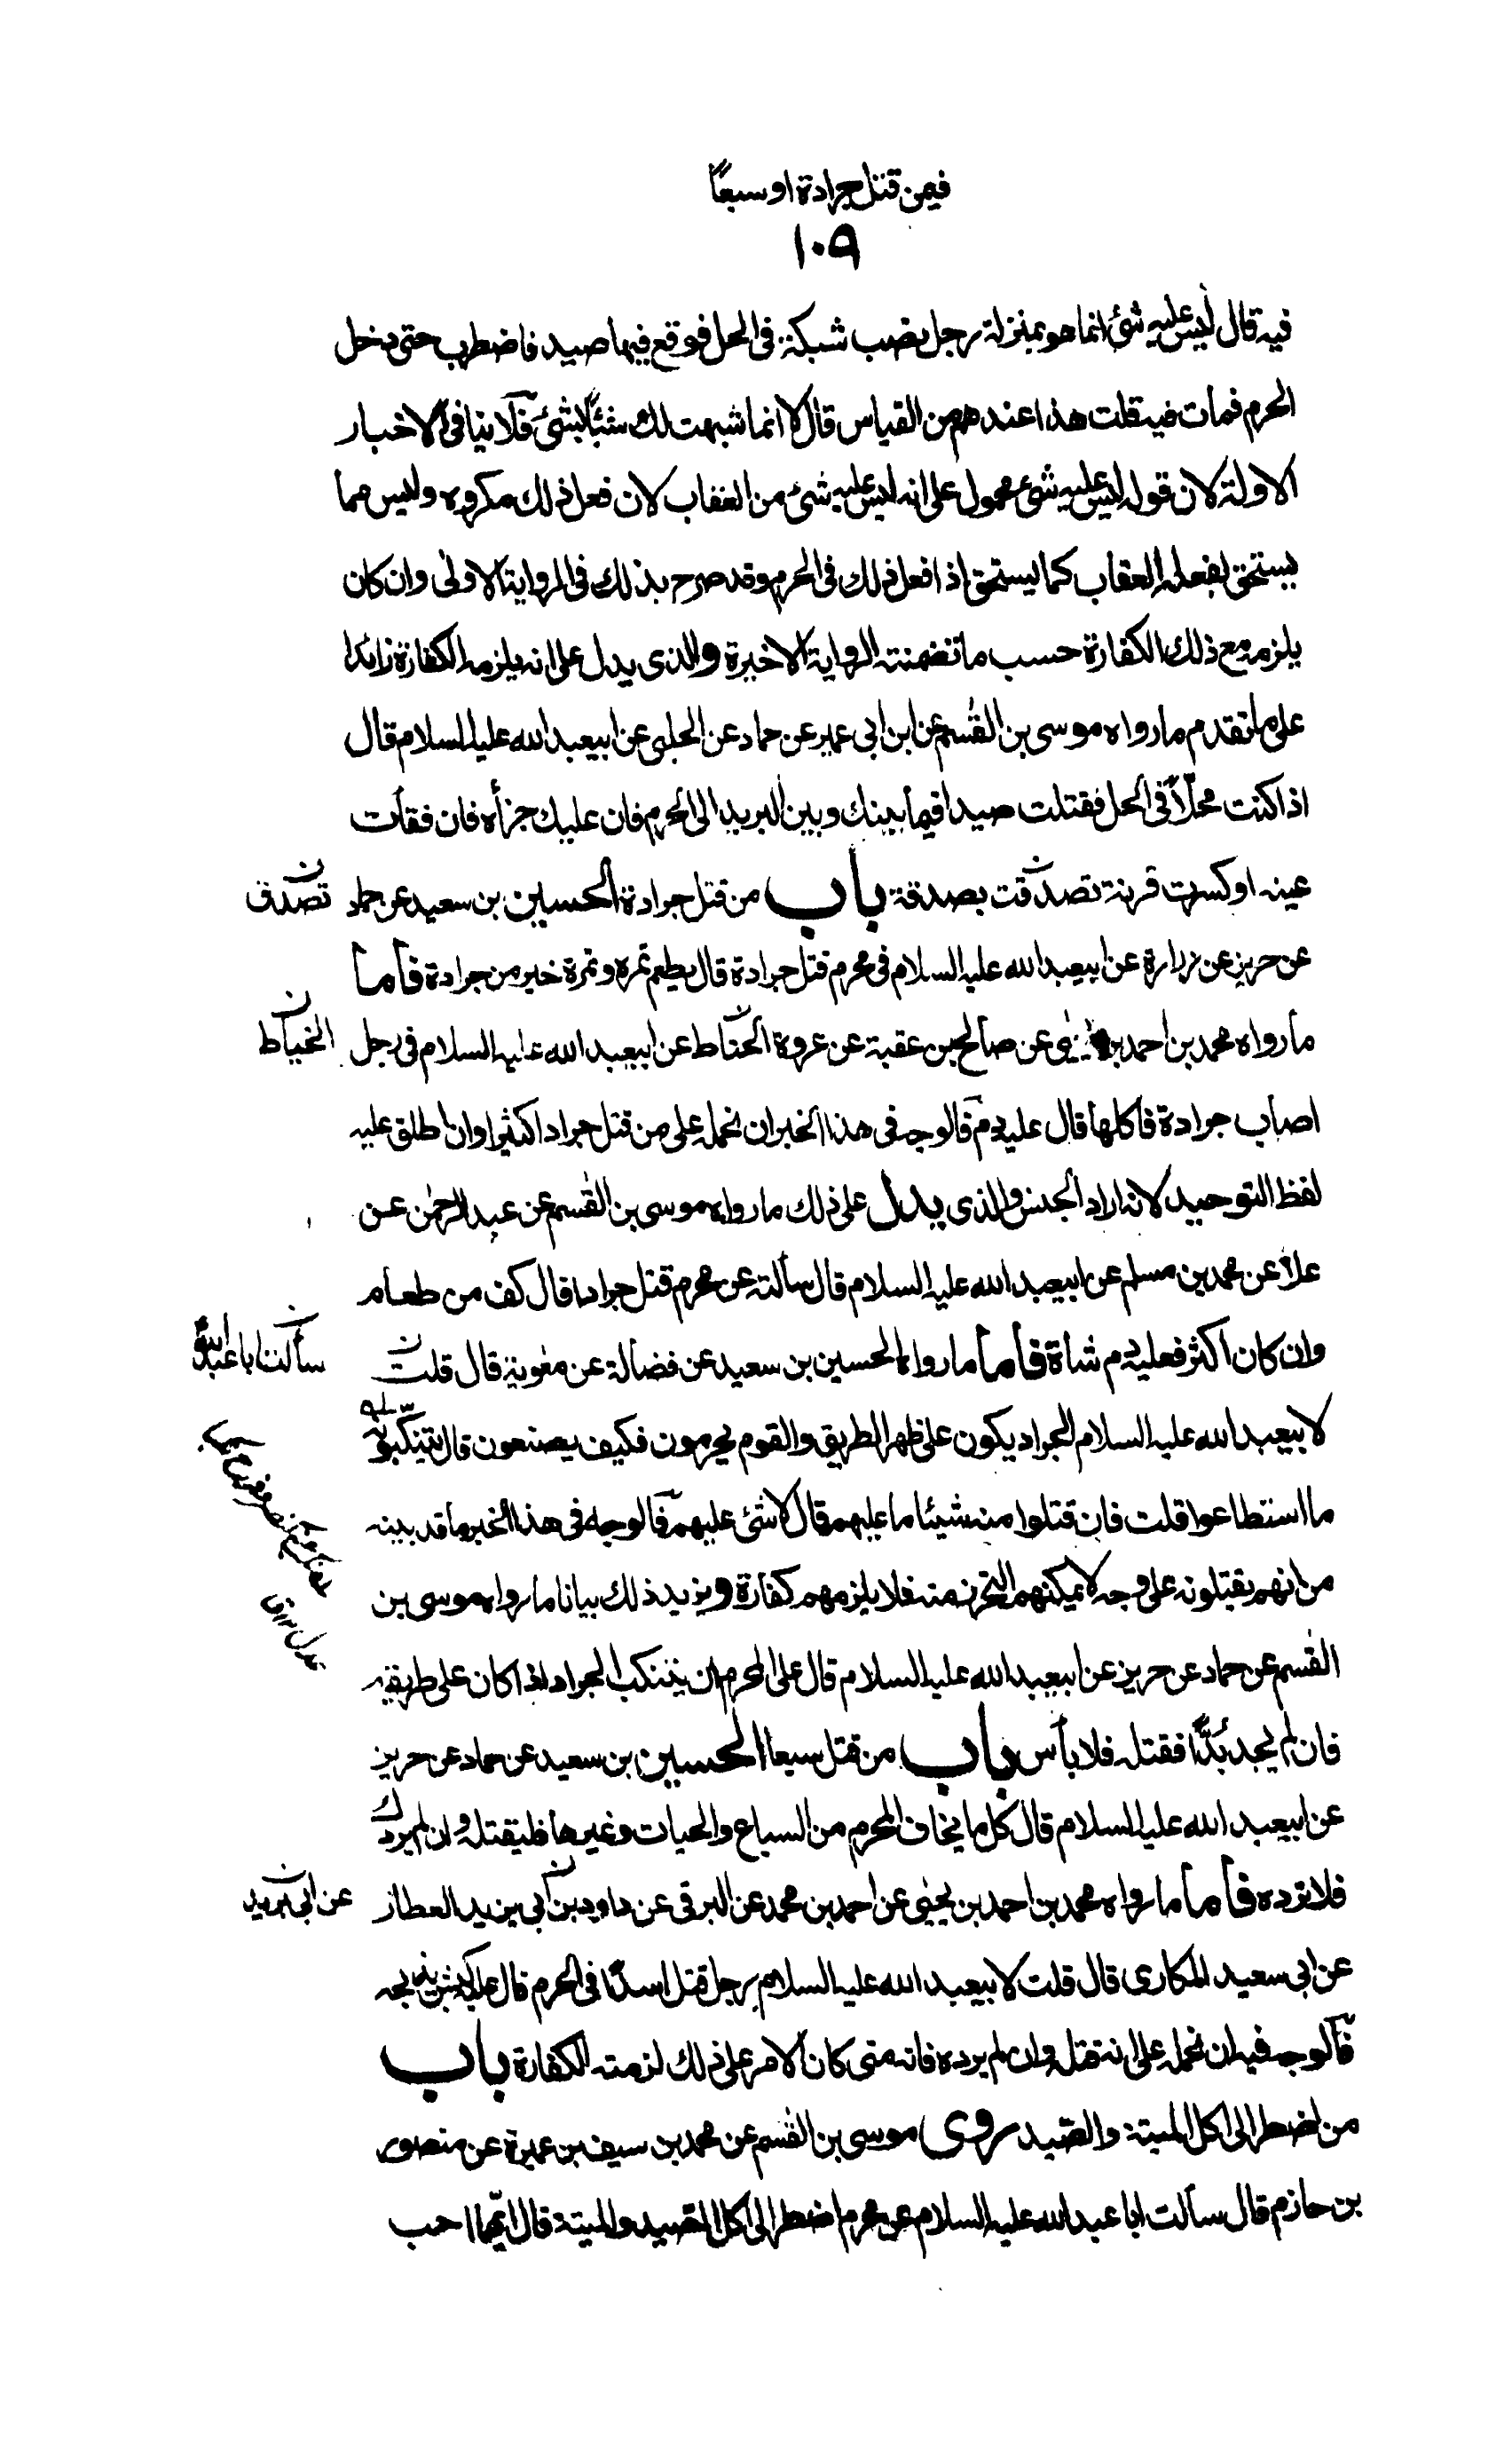 فيمن قتل جرادة او سبعًا
١٠٩
فيه قال ليس عليه شئ انما هو بمنزلة رجل نصب شبكة فى الحل فوقع فيها صيد فاضطرب حتى دخل
الحرم فمات فيه قلت هذا عندهم من القياس قال لا انما شبهت لك شيئًا بشئ فلا ينافى الاخبار
الاولة لان قوله ليس عليه شئ محمول على انه ليس عليه شئ من العقاب لان فعل ذلك مكروه وليس مما
يستحق بفعله العقاب كما يستحق اذا فعل ذلك فى الحرم وقد صرح بذلك فى الرواية الاولى وان كان
يلزمه مع ذلك الكفارة حسب ما تضمنته الرواية الاخيرة والذى يدل على انه يلزمه الكفارة زائدا
على ما تقدم ما رواه موسى بن القسم عن ابن ابى عمير عن حماد عن الحلبى عن ابيعبد الله عليه السلام قال
اذا كنت محلًا فى الحل فقتلت صيدا فيما بينك وبين البريد الى الحرم فان عليك جزأه فان فقأت
عينه او كسرت قرنه تصدقت بصدقة باب من قتل جرادة الحسين بن سعيد عن حماد
تصدق ن
عن حريز عن زرارة عن ابيعبد الله عليه السلام فى محرم قتل جرادة قال يطعم تمره وتمرة خير من جرادة فأما
ما رواه محمد بن احمد بن يحيى عن صالح بن عقبة عن عروة الحناط عن ابيعبد الله عليه السلام فى رجل
الخياط ن
اصاب جرادة فاكلها قال عليه دم فالوجه فى هذا الخبر ان نحمله على من قتل جرادا كثيرا وان اطلق عليه
لفظ التوحيد لانه اراد الجنس والذى يدل على ذلك ما رواه موسى بن القسم عن عبد الرحمن عن
علا عن محمد بن مسلم عن ابيعبد الله عليه السلام قال سألته عن محرم قتل جرادا قال كف من طعام
وان كان اكثر فعليه دم شاة فأما ما رواه الحسين بن سعيد عن فضالة عن معوية قال قلت
سألت ابا عبدالله ن
لابيعبد الله عليه السلام الجراد يكون على ظهر الطريق والقوم محرمون فكيف يصنعون قال يتنكبونه
ما استطاعوا قلت فان قتلوا منه شيئا ما عليهم قال لا شئ عليهم فالوجه فى هذا الخبر ما قد بينه
من انهم يقتلونه على وجه لا يمكنهم التحرز منه فلا يلزمهم كفارة ويزيد ذلك بيانا ما رواه موسى بن
القسم عن حماد عن حريز عن ابيعبد الله عليه السلام قال على المحرم ان يتنكب الجراد اذا كان على طريقه
فان لم يجد بدًّا فقتله فلا بأس باب من قتل سبعا الحسين بن سعيد عن حماد عن حريز
عن ابيعبد الله عليه السلام قال كل ما يخاف المحرم من السباع والحيات وغيرها فليقتله وان لم يردك
فلا ترده فأما ما رواه محمد بن احمد بن يحيى عن احمد بن محمد عن البرقى عن داود بن ابى يزيد العطار
عن ابى يزيد ن
عن ابى سعيد المكارى قال قلت لابيعبد الله عليه السلام رجل قتل اسدًا فى الحرم قال عليه كبش يذبحه
فالوجه فيه ان نحمله على انه قتله وان لم يرده فانه متى كان الامر على ذلك لزمته الكفارة باب
من اضطر الى اكل الميتة والصيد روى موسى بن القسم عن محمد بن سيف بن عميرة عن منصور
بن حازم قال سألت ابا عبد الله عليه السلام عن محرم اضطر الى اكل الصيد والميتة قال ايهما احب